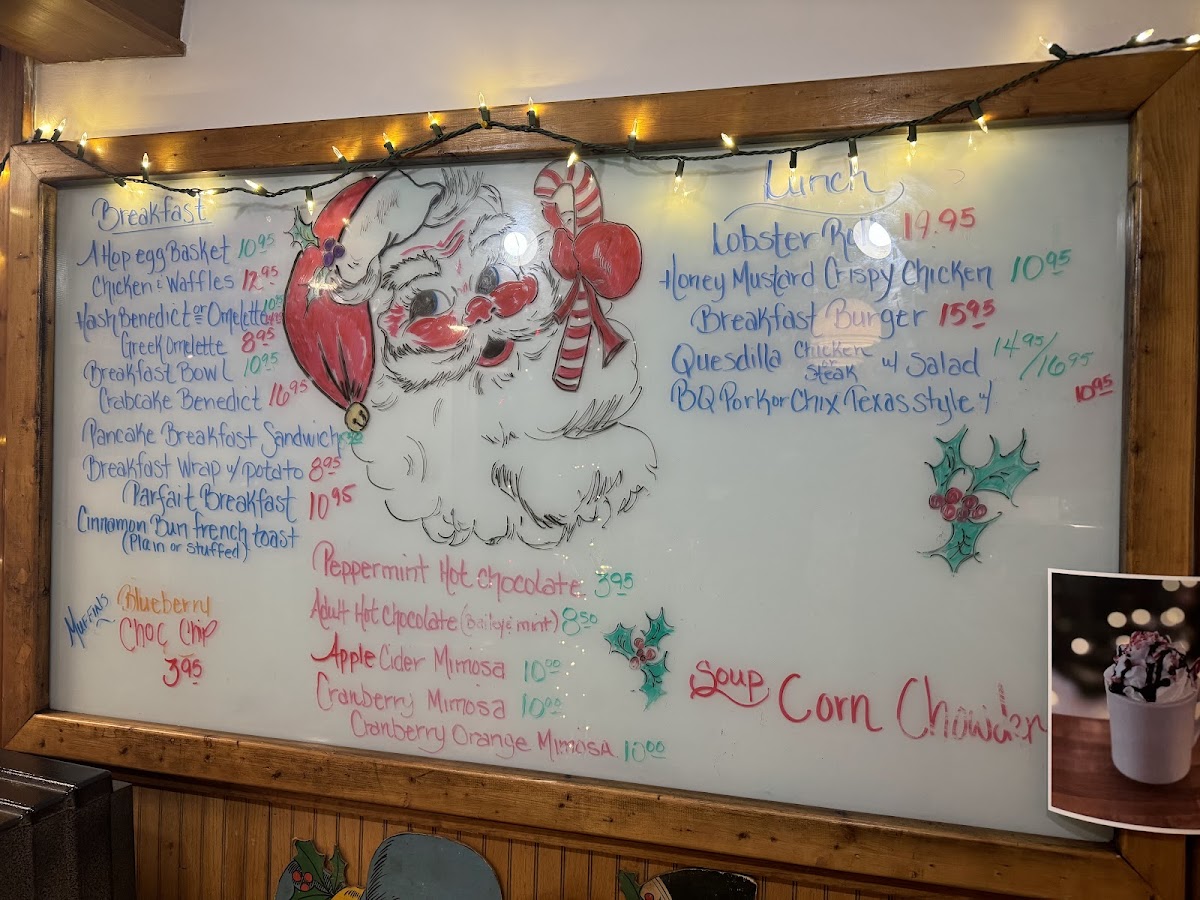 Breakfast
1 Hop egg Basket 10.95
Chicken & Waffles 12.95
Hash Benedict or Omelette
Greek Omelette 8.95
Breakfast Bowl 10.95
Crabcake Benedict 16.95
Pancake Breakfast Sandwich
Breakfast Wrap w/ potato 8.95
Parfait Breakfast 10.95
Cinnamon Bun french toast
(Plain or stuffed)
Muffins
Blueberry
Choc Chip
3.95
Peppermint Hot chocolate 3.95
Adult Hot chocolate (Baileys mint) 8.50
Apple Cider Mimosa 10.00
Cranberry Mimosa 10.00
Cranberry Orange Mimosa 10.00
Lunch
Lobster Roll 19.95
Honey Mustard Crispy Chicken 10.95
Breakfast Burger 15.95
Quesdilla Chicken or Steak w/ Salad 14.95/16.95
BQ Pork or Chix Texas style w/ 10.95
Soup Corn Chowder